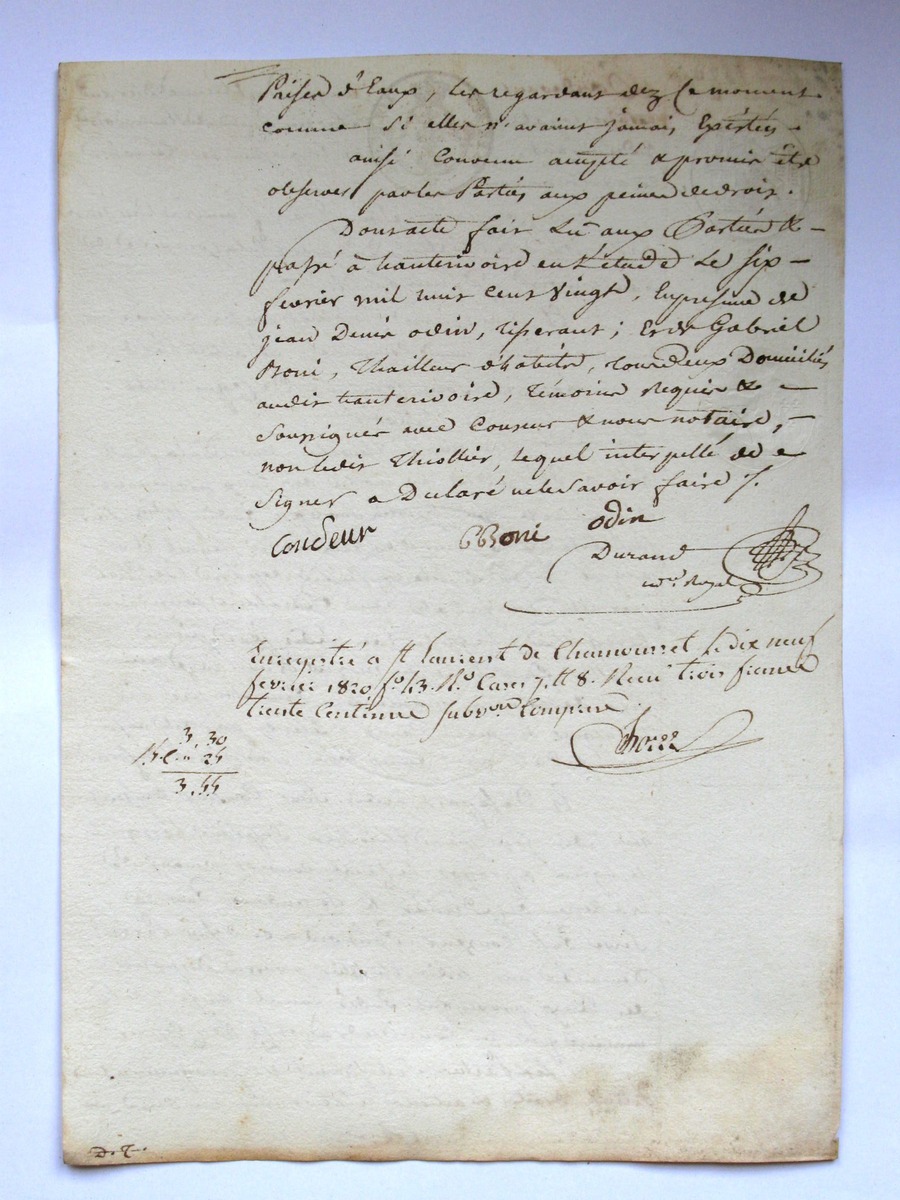 Prises d'Eaux, les regardant dez Ce moment
comme Si elles n'avaint jamais Existées -
ainsi Convenu arrêté & promis être
observer par les Parties aux peines de droit.
Dont acte fait Lu aux Parties & -
passé à hauterivoire en L'étude Le six -
fevrier mil huit cent vingt, En presence de
jean Denis odin, tisserant; Et de Gabriel
Boni, Thailleur d'habits, tous deux Domiciliés
audit hauterivoire, témoins Requis & -
Soussignés avec Couseur & nous notaire, -
non ledit Thiollier, lequel interpellé de -
Signer a Declaré ne le Savoir faire /.
Couseur GBoni odin
Durand
nre. Royal
Enregistré a St laurent de Chamousset le dix neuf
fevrier 1820 fo. 43. Ro. Cases 7. Et 8. Recu trois francs
trente Centimes Subvon. Comprise
3, 30
25
3, 55
D. T.